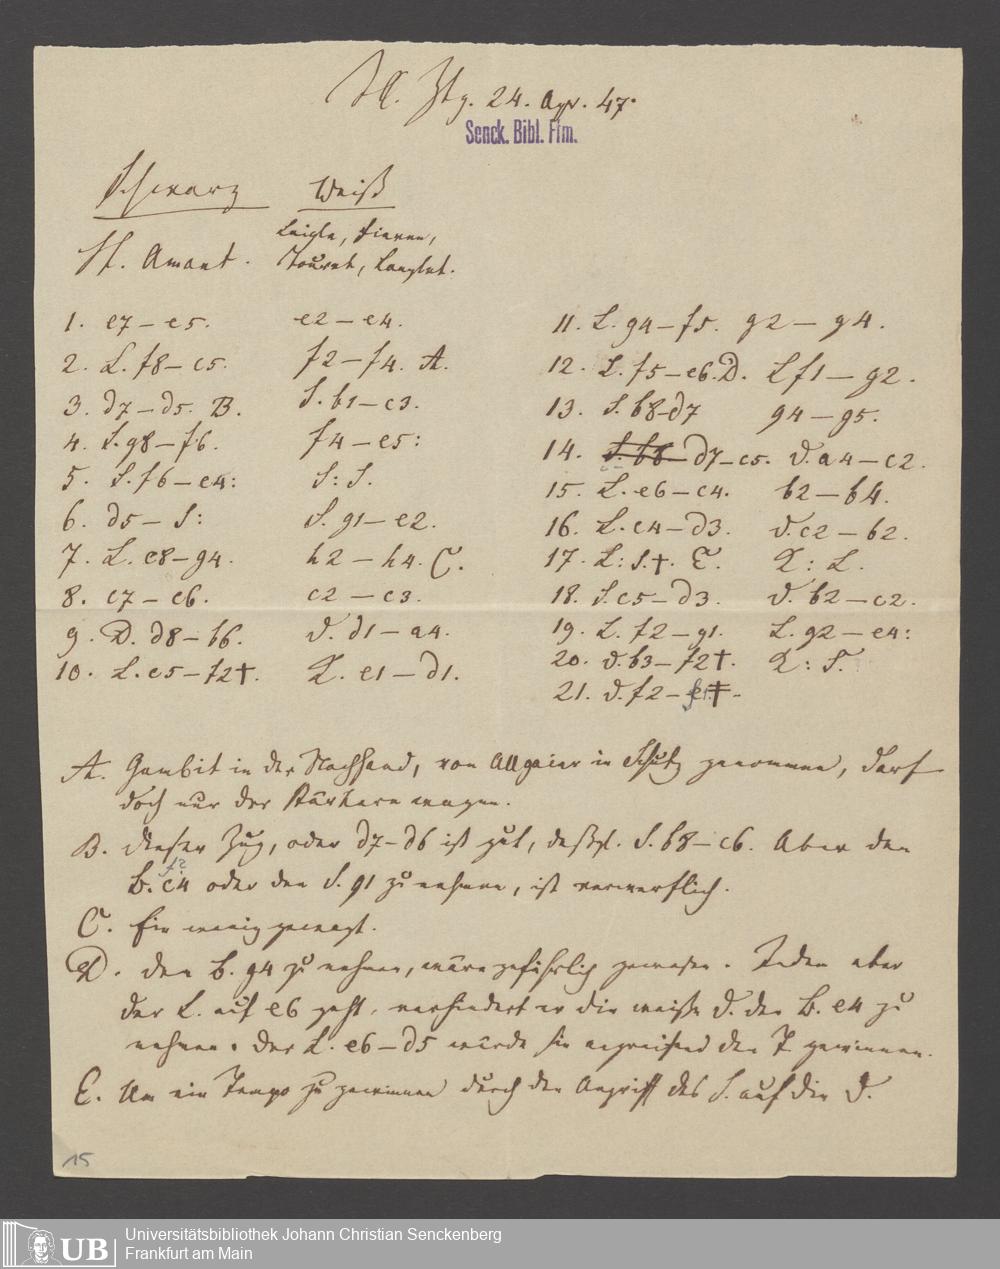 Ill. Ztg. 24. Apr. 47.
Senck. Bibl. Ffm.
Schwarz Weiß
St. Amant. Laigle, Sieren,
Touret, Lenglet.
1. e7 – e5. e2 – e4.
2. L. f8 – c5. f2 – f4. A.
3. d7 – d5. B. S. b1 – c3.
4. S. g8 – f6. f4 – e5:
5. S. f6 – e4: S: S.
6. d5 – S: S. g1 – e2.
7. L. c8 – g4. h2 – h4. C.
8. c7 – c6. c2 – c3.
9. D. d8 – b6. D. d1 – a4.
10. L. c5 – f2†. K. e1 – d1.
11. L. g4 – f5. g2 – g4.
12. L. f5 – e6. D. L f1 – g2.
13. S. b8 – d7 g4 – g5.
14. S. b8 – d7 – c5. D. a4 – c2.
15. L. e6 – c4. b2 – b4.
16. L. c4 – d3. D. c2 – b2.
17. L: S.†. E. K: L.
18. S. c5 – d3. D. b2 – c2.
19. L. f2 – g1. L. g2 – e4:
20. D. b3 – f2†. K: S.
21. D. f2 –
A. Gambit in der Nachhand, von Allgaier in Schutz genommen, darf
doch nur der Stärkere wagen.
B. Dieser Zug, oder d7 – d6 ist gut, deßgl. S. b8 – c6. Aber den
f2
B. c4 oder den S. g1 zu nehmen, ist verwerflich.
C. Ein wenig gewagt.
D. Den B. g4 zu nehmen, wäre gefährlich gewesen. Indem aber
der L. auf e6 geht, verhindert er die weiße D. den B. e4 zu
nehmen. Der L. e6 – d5 würde sie angreifend den T. gewinnen.
E. Um ein Tempo zu gewinnen durch den Angriff des S. auf die D.
15
UB
Universitätsbibliothek Johann Christian Senckenberg
Frankfurt am Main